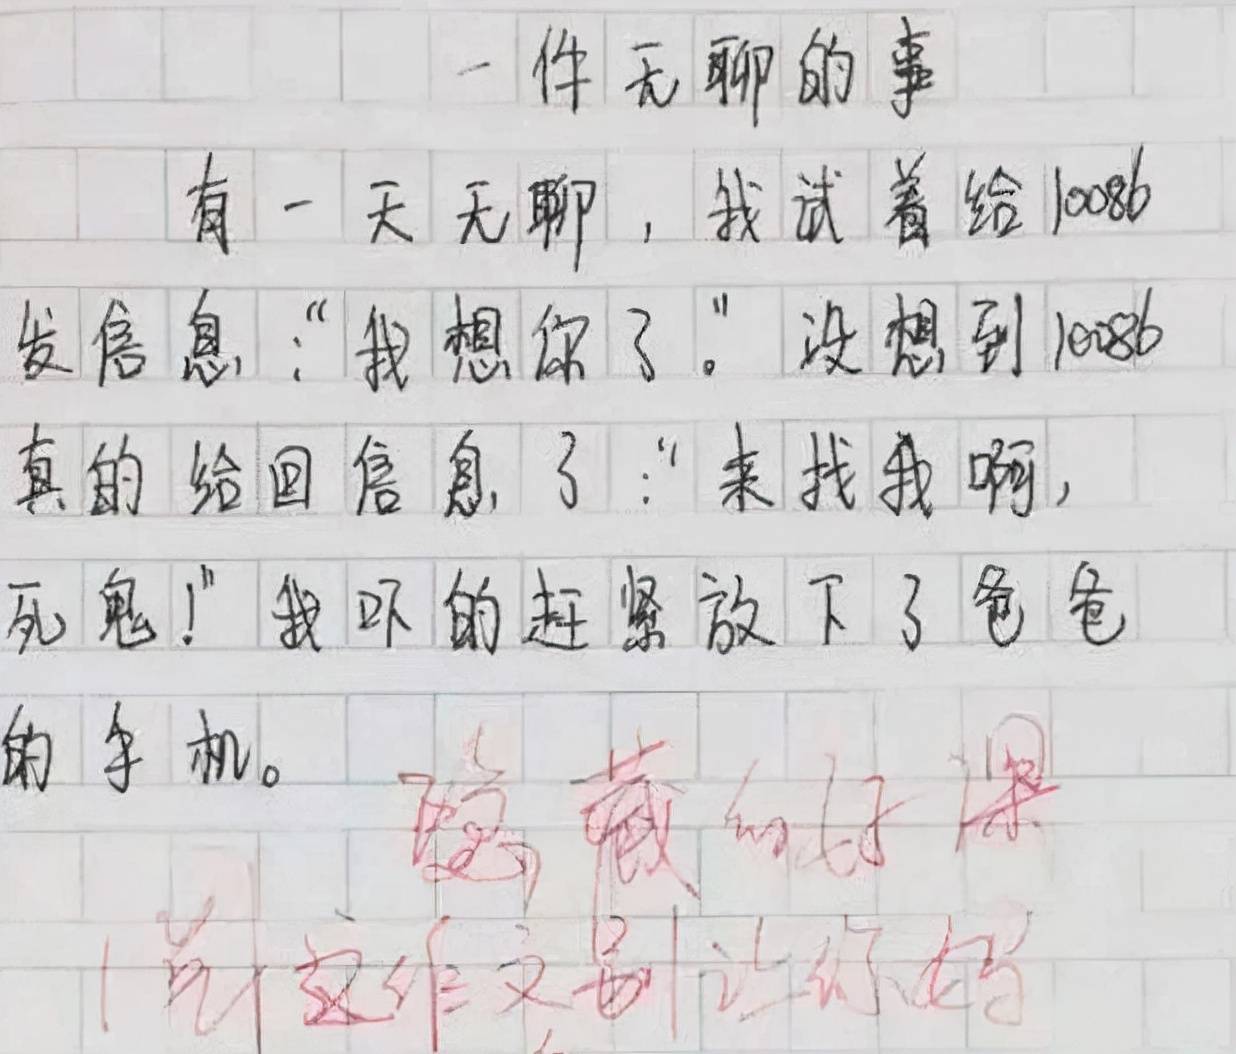 一件无聊的事
有一天无聊,我试着给10086
发信息:“我想你了。”没想到10086
真的给回信息了:“来找我啊,
死鬼!”我吓的赶紧放下了爸爸
的手机。
隐藏的好深
这作文别让你妈